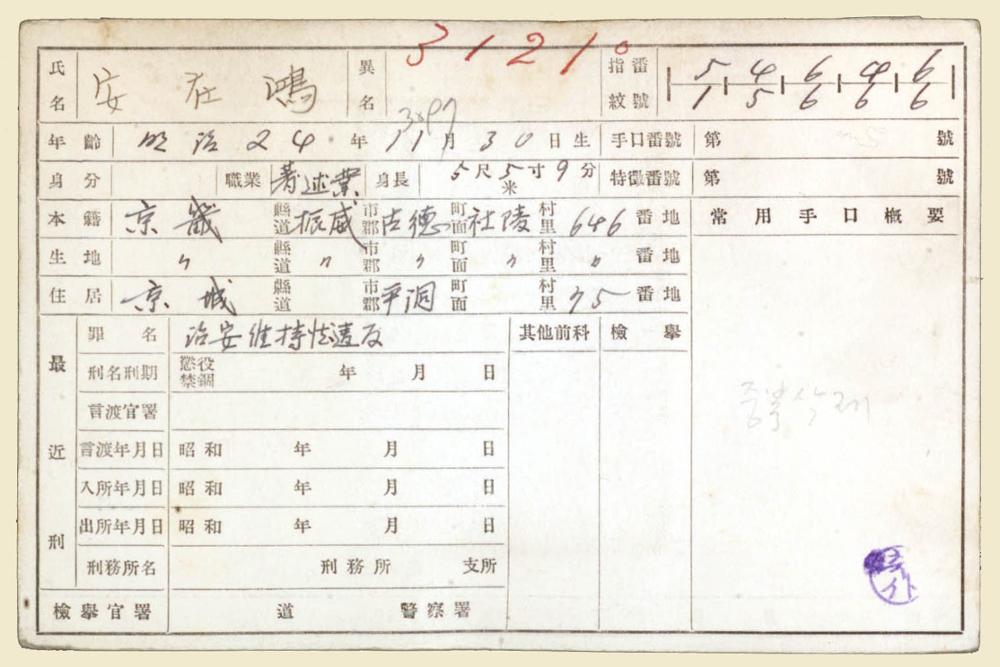 3121°
氏名 安在鴻 異名 指紋番號 5 4 6 4 6 / 1 5 6 6 6
年齡 明治24年11月30日生 手口番號 第 號
身分 職業 著述業 身長 5尺5寸9分 米 特徵番號 第 號
本籍 京畿 縣道 振威 市郡 古德 町面 社陵 村里 646 番地 常用手口概要
生地 〃 縣道 〃 市郡 〃 町面 〃 村里 〃 番地
住居 京城 縣道 市郡 平洞 町面 村里 75 番地
最近刑 罪名 治安維持法違反 其他前科 檢擧
刑名刑期 懲役 禁錮 年 月 日
중복삭제
言渡官署
言渡年月日 昭和 年 月 日
入所年月日 昭和 年 月 日
出所年月日 昭和 年 月 日
刑務所名 刑務所 支所
檢擧官署 道 警察署